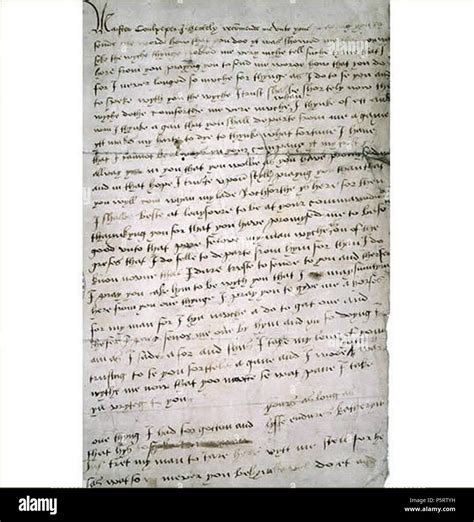 Master Coulpeper I hertely recomende me unto youe praying you to
sende me worde how that you doo yt was showed me that you was
sike the wyche thynge trobled me very muche tell suche tyme that I
here from you praying you to send me worde how that you do
for I never longed so muche for thynge as I do to se you and
to speke wyth you the wyche I trust shal be shortely now the
wyche dothe comforthe me verie muche whan I thynke of ett and
wan I thynke agan that you shall departe from me agane
ytt makes my harte to dye to thynke what fortune I have
that I cannot be always yn your company yt my trust ys
allway in you that you wolbe as you have promysed me
and in that hope I truste upon styll praying you than that
you wyll com whan my lade Rochforthe ys here for then
I shalbe beste at leaysoure to be at your commarendmant
thankyng you for that you have promysed me to be so
good unto that pore felowe my man whyche on of the
grefes that I do felle to departe from hym for then I do
know noone that I dare truste to sende to you and therfor
I pray you take hym to be wyth you that I may sumtym
here from you one thynge I pray you to gyve me a horse
for my man for I hyd muche a do to gat one and
therfor I pray sende me one by hym and yn so doying I
am as I sade afor and thus I take my leve of you
trusting to se you shorttele agane and I wode you was
wythe me now that yoo maitte se what pane I take
yn wryteg to you
yours as long as
lyffe endures Katheryn
one thyng I had forgotten and
that hys to
my man to tare here wyt me still for he
sas wat so mever you bed hym he wyll do et and
alamy
alamy
alamy
Image ID: P5RTYH
www.alamy.com